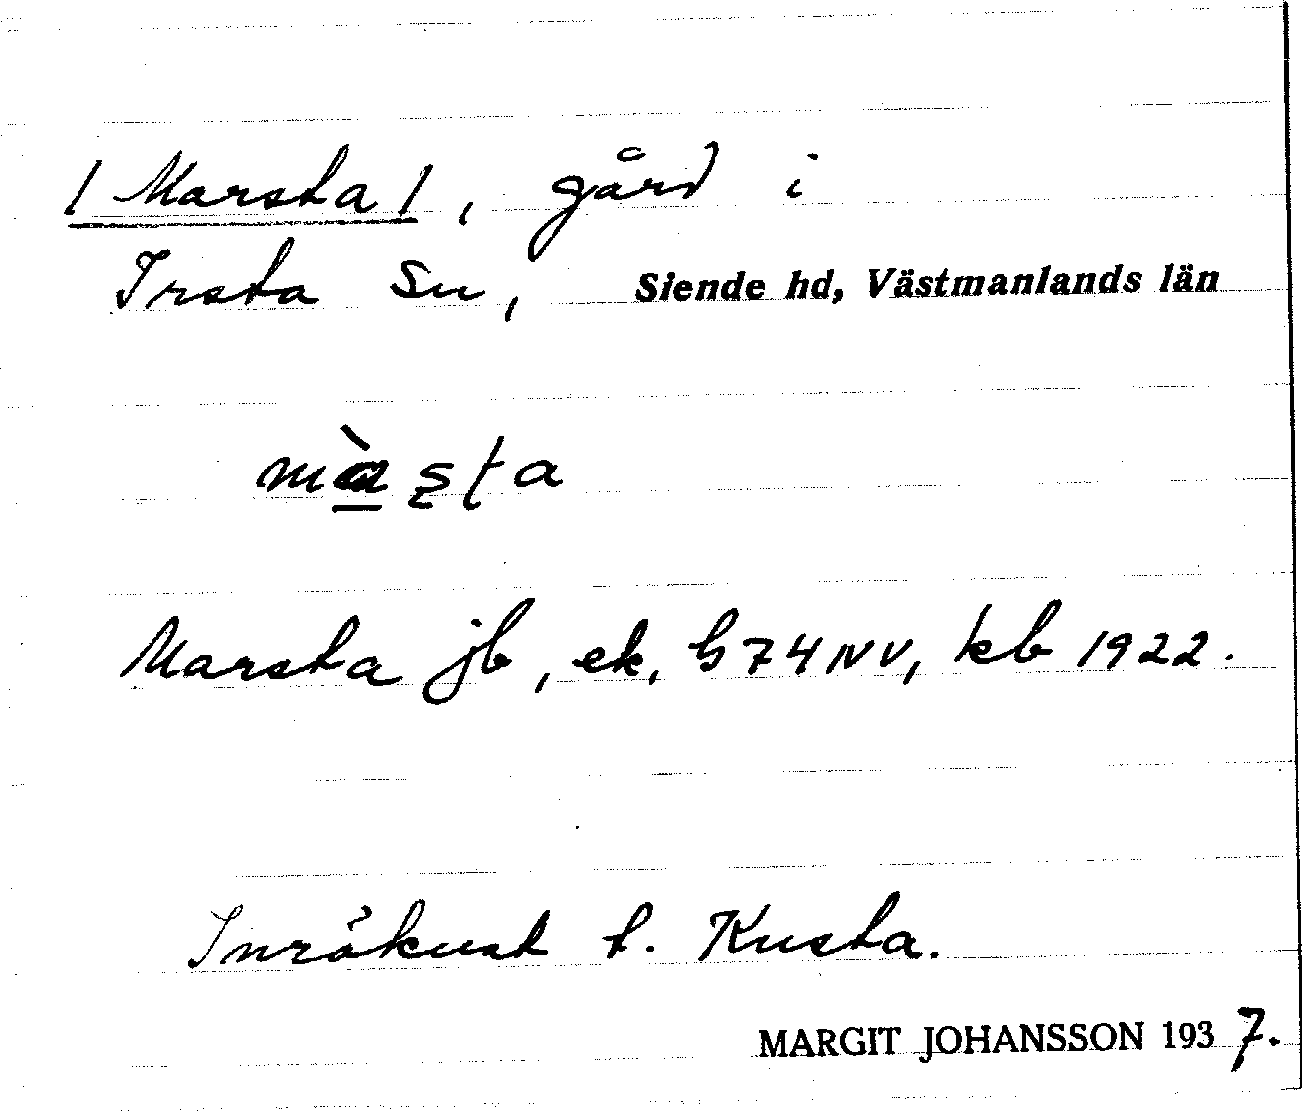 /Marsta/, gård i
Irsta Sn, Siende hd, Västmanlands län
màʂʈa
Marsta jb, ek, b 74 NV, kb 1922.
Inräknat t. Kusta.
MARGIT JOHANSSON 1937.